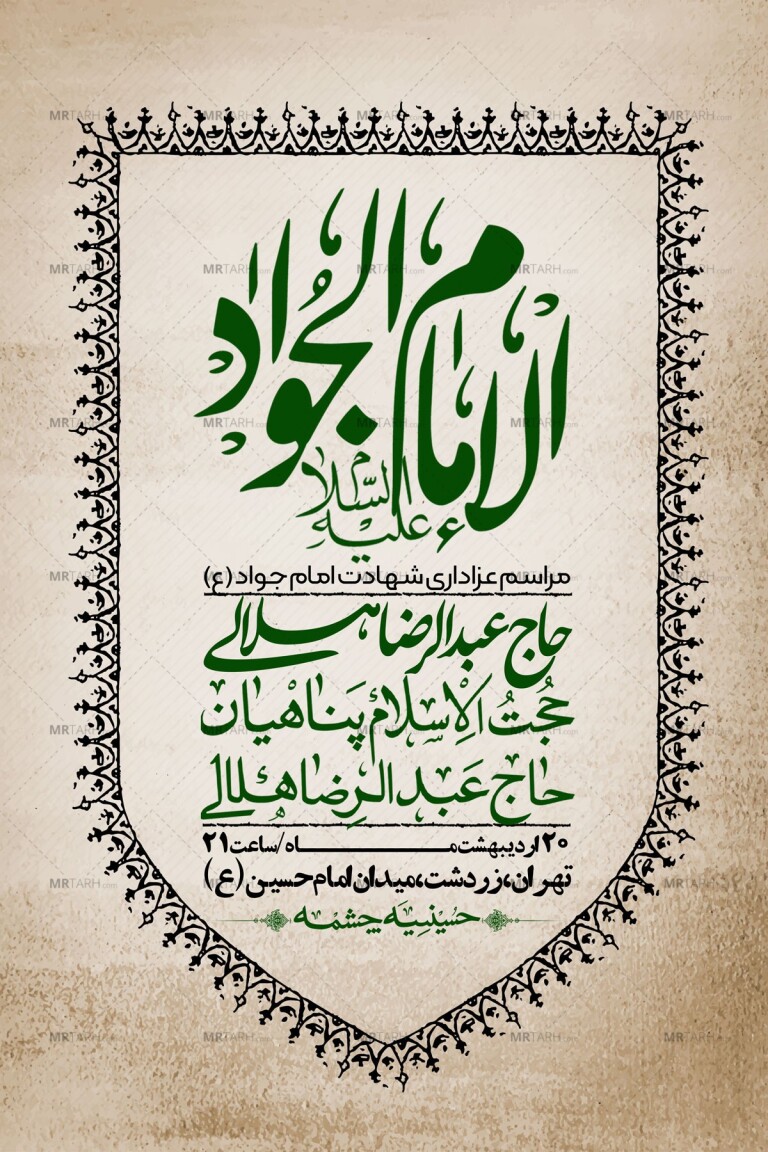 الامام الجواد
علیه السلام
مراسم عزاداری شهادت امام جواد (ع)
حاج عبدالرضا هلالی
حُجتُ الاِسلام پَناهیان
حاج عَبدالرِضا هلالی
۲۰ اردیبهشت مــــاه/ساعت ۲۱
تهران،زردشت،میدان امام حسین (ع)
حسینیه چشمه
MRTARH.com